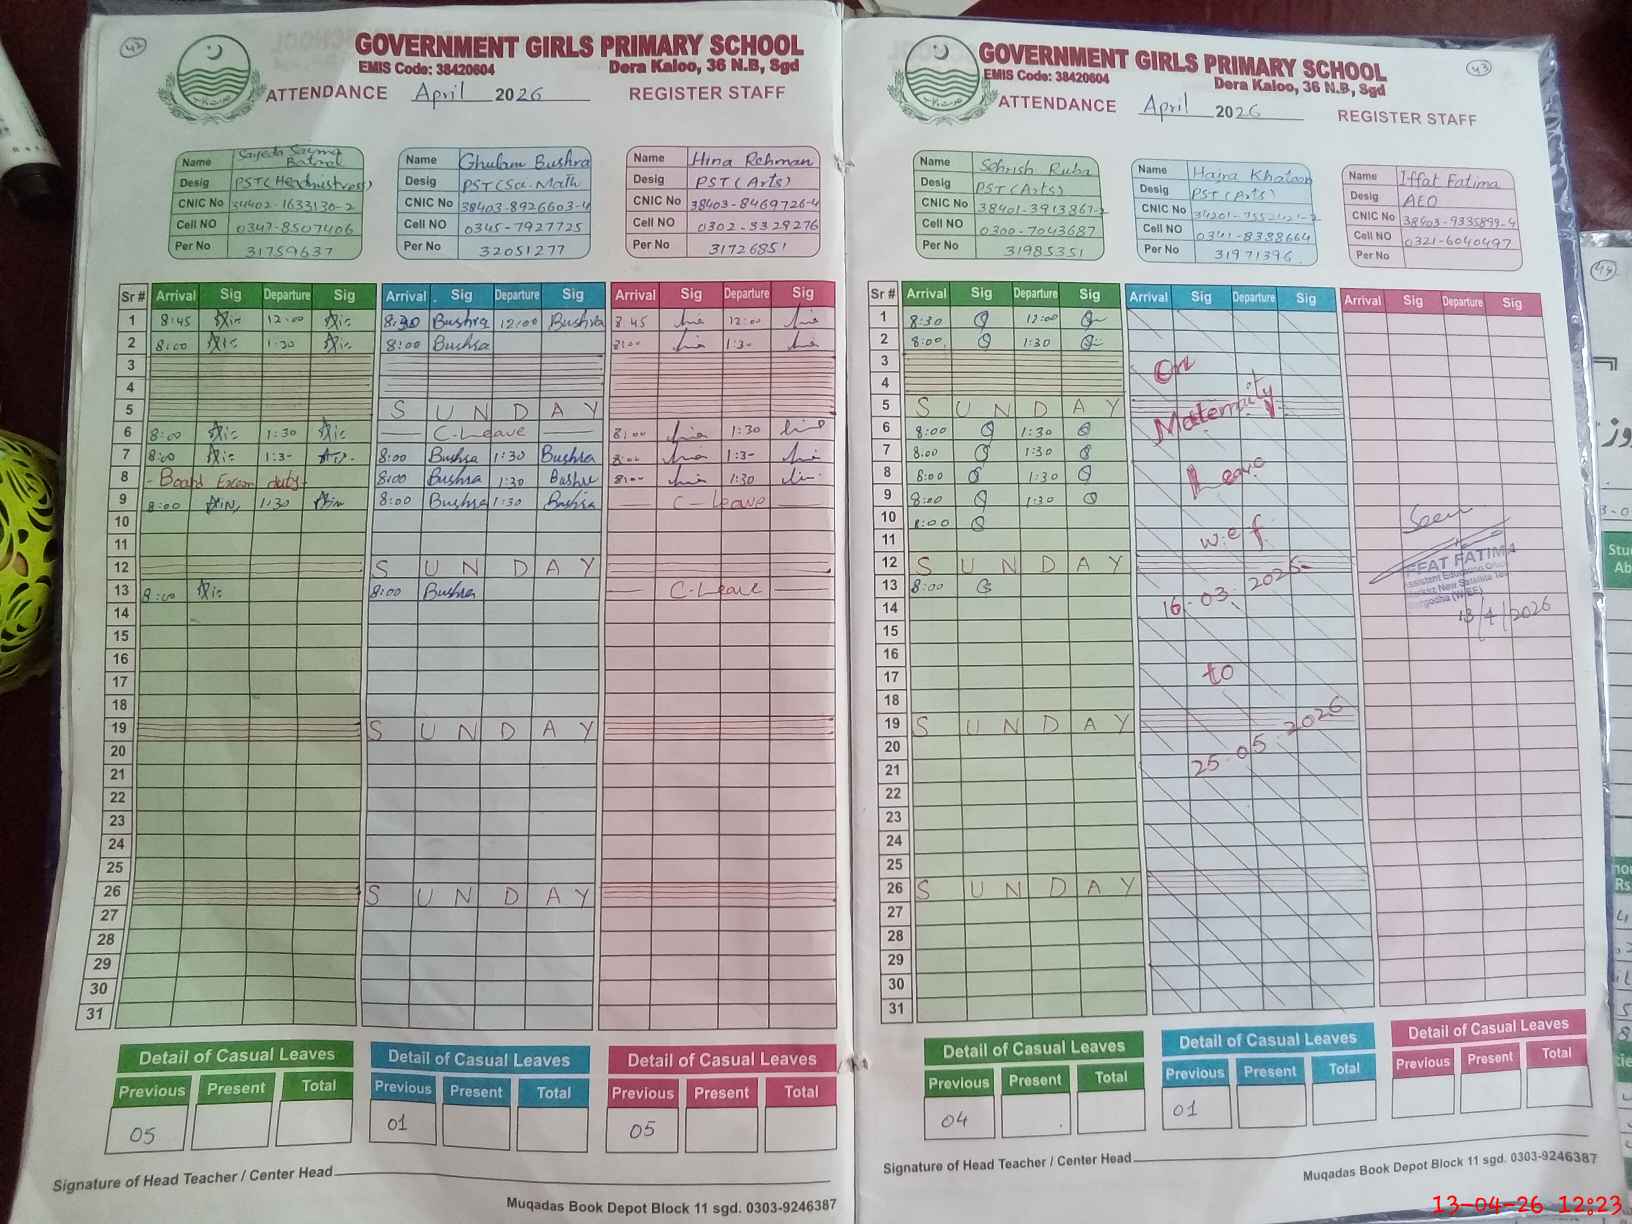 42
GOVERNMENT GIRLS PRIMARY SCHOOL
EMIS Code: 38420604 Dera Kaloo, 36 N.B, Sgd
ATTENDANCE April 2026 REGISTER STAFF
Name Sayeda Sayma Batool
Desig PST (Headmistress)
CNIC No 34402-1633130-2
Cell NO 0347-8507406
Per No 31759637
Name Ghulam Bushra
Desig PST (Sci-Math
CNIC No 38403-8926603-4
Cell NO 0345-7927725
Per No 32051277
Name Hina Rehman
Desig PST (Arts)
CNIC No 38403-8469726-4
Cell NO 0302-3329276
Per No 31726851
Sr # Arrival Sig Departure Sig Arrival Sig Departure Sig Arrival Sig Departure Sig
1 8:45 12:00 8:30 Bushra 12:00 Bushra 8:45 12:00
2 8:00 1:30 8:00 Bushra 8:00 1:3-
3
4
5 SUNDAY
6 8:00 1:30 C-Leave 8:00 1:30
7 8:00 1:3- 8:00 Bushra 1:30 Bushra 8:00 1:3-
8 - Board Exam duty- 8:00 Bushra 1:30 Bushra 8:00 1:30
9 8:00 1:30 8:00 Bushra 1:30 Bushra C-Leave
10
11
12 SUNDAY
13 8:00 8:00 Bushra C-Leave
14
15
16
17
18
19 SUNDAY
20
21
22
23
24
25
26 SUNDAY
27
28
29
30
31
Detail of Casual Leaves Detail of Casual Leaves Detail of Casual Leaves
Previous Present Total Previous Present Total Previous Present Total
05 01 05
Signature of Head Teacher / Center Head
Muqadas Book Depot Block 11 sgd. 0303-9246387
43
GOVERNMENT GIRLS PRIMARY SCHOOL
EMIS Code: 38420604 Dera Kaloo, 36 N.B, Sgd
ATTENDANCE April 2026 REGISTER STAFF
Name Sehrish Ruba
Desig PST (Arts)
CNIC No 38401-3913867-2
Cell NO 0300-7043687
Per No 31985351
Name Hajra Khatoon
Desig PST (Arts)
CNIC No
Cell NO 0341-8388664
Per No 31971396
Name Iffat Fatima
Desig AEO
CNIC No 38403-9335899-4
Cell NO 0321-6040497
Per No
Sr # Arrival Sig Departure Sig Arrival Sig Departure Sig Arrival Sig Departure Sig
1 8:30 12:00
2 8:00 1:30
3
4
5 SUNDAY
6 8:00 1:30
7 8:00 1:30
8 8:00 1:30
9 8:00 1:30
10 8:00
11
12 SUNDAY
13 8:00
14
15
16
17
18
19 SUNDAY
20
21
22
23
24
25
26 SUNDAY
27
28
29
30
31
On
Maternity
Leave
w.e.f
16-03-2026
to
25-05-2026
Seen
IFFAT FATIMA
13/4/2026
Detail of Casual Leaves Detail of Casual Leaves Detail of Casual Leaves
Previous Present Total Previous Present Total Previous Present Total
04 01
Signature of Head Teacher / Center Head
Muqadas Book Depot Block 11 sgd. 0303-9246387
44
13-04-26 12:23